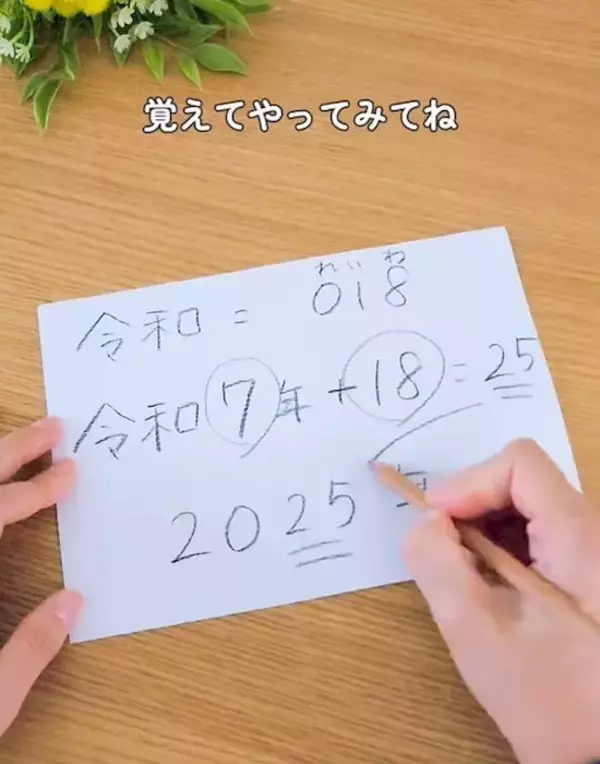 覚えてやってみてね
れいわ
令和 = 018
令和7年+18=25
2025年